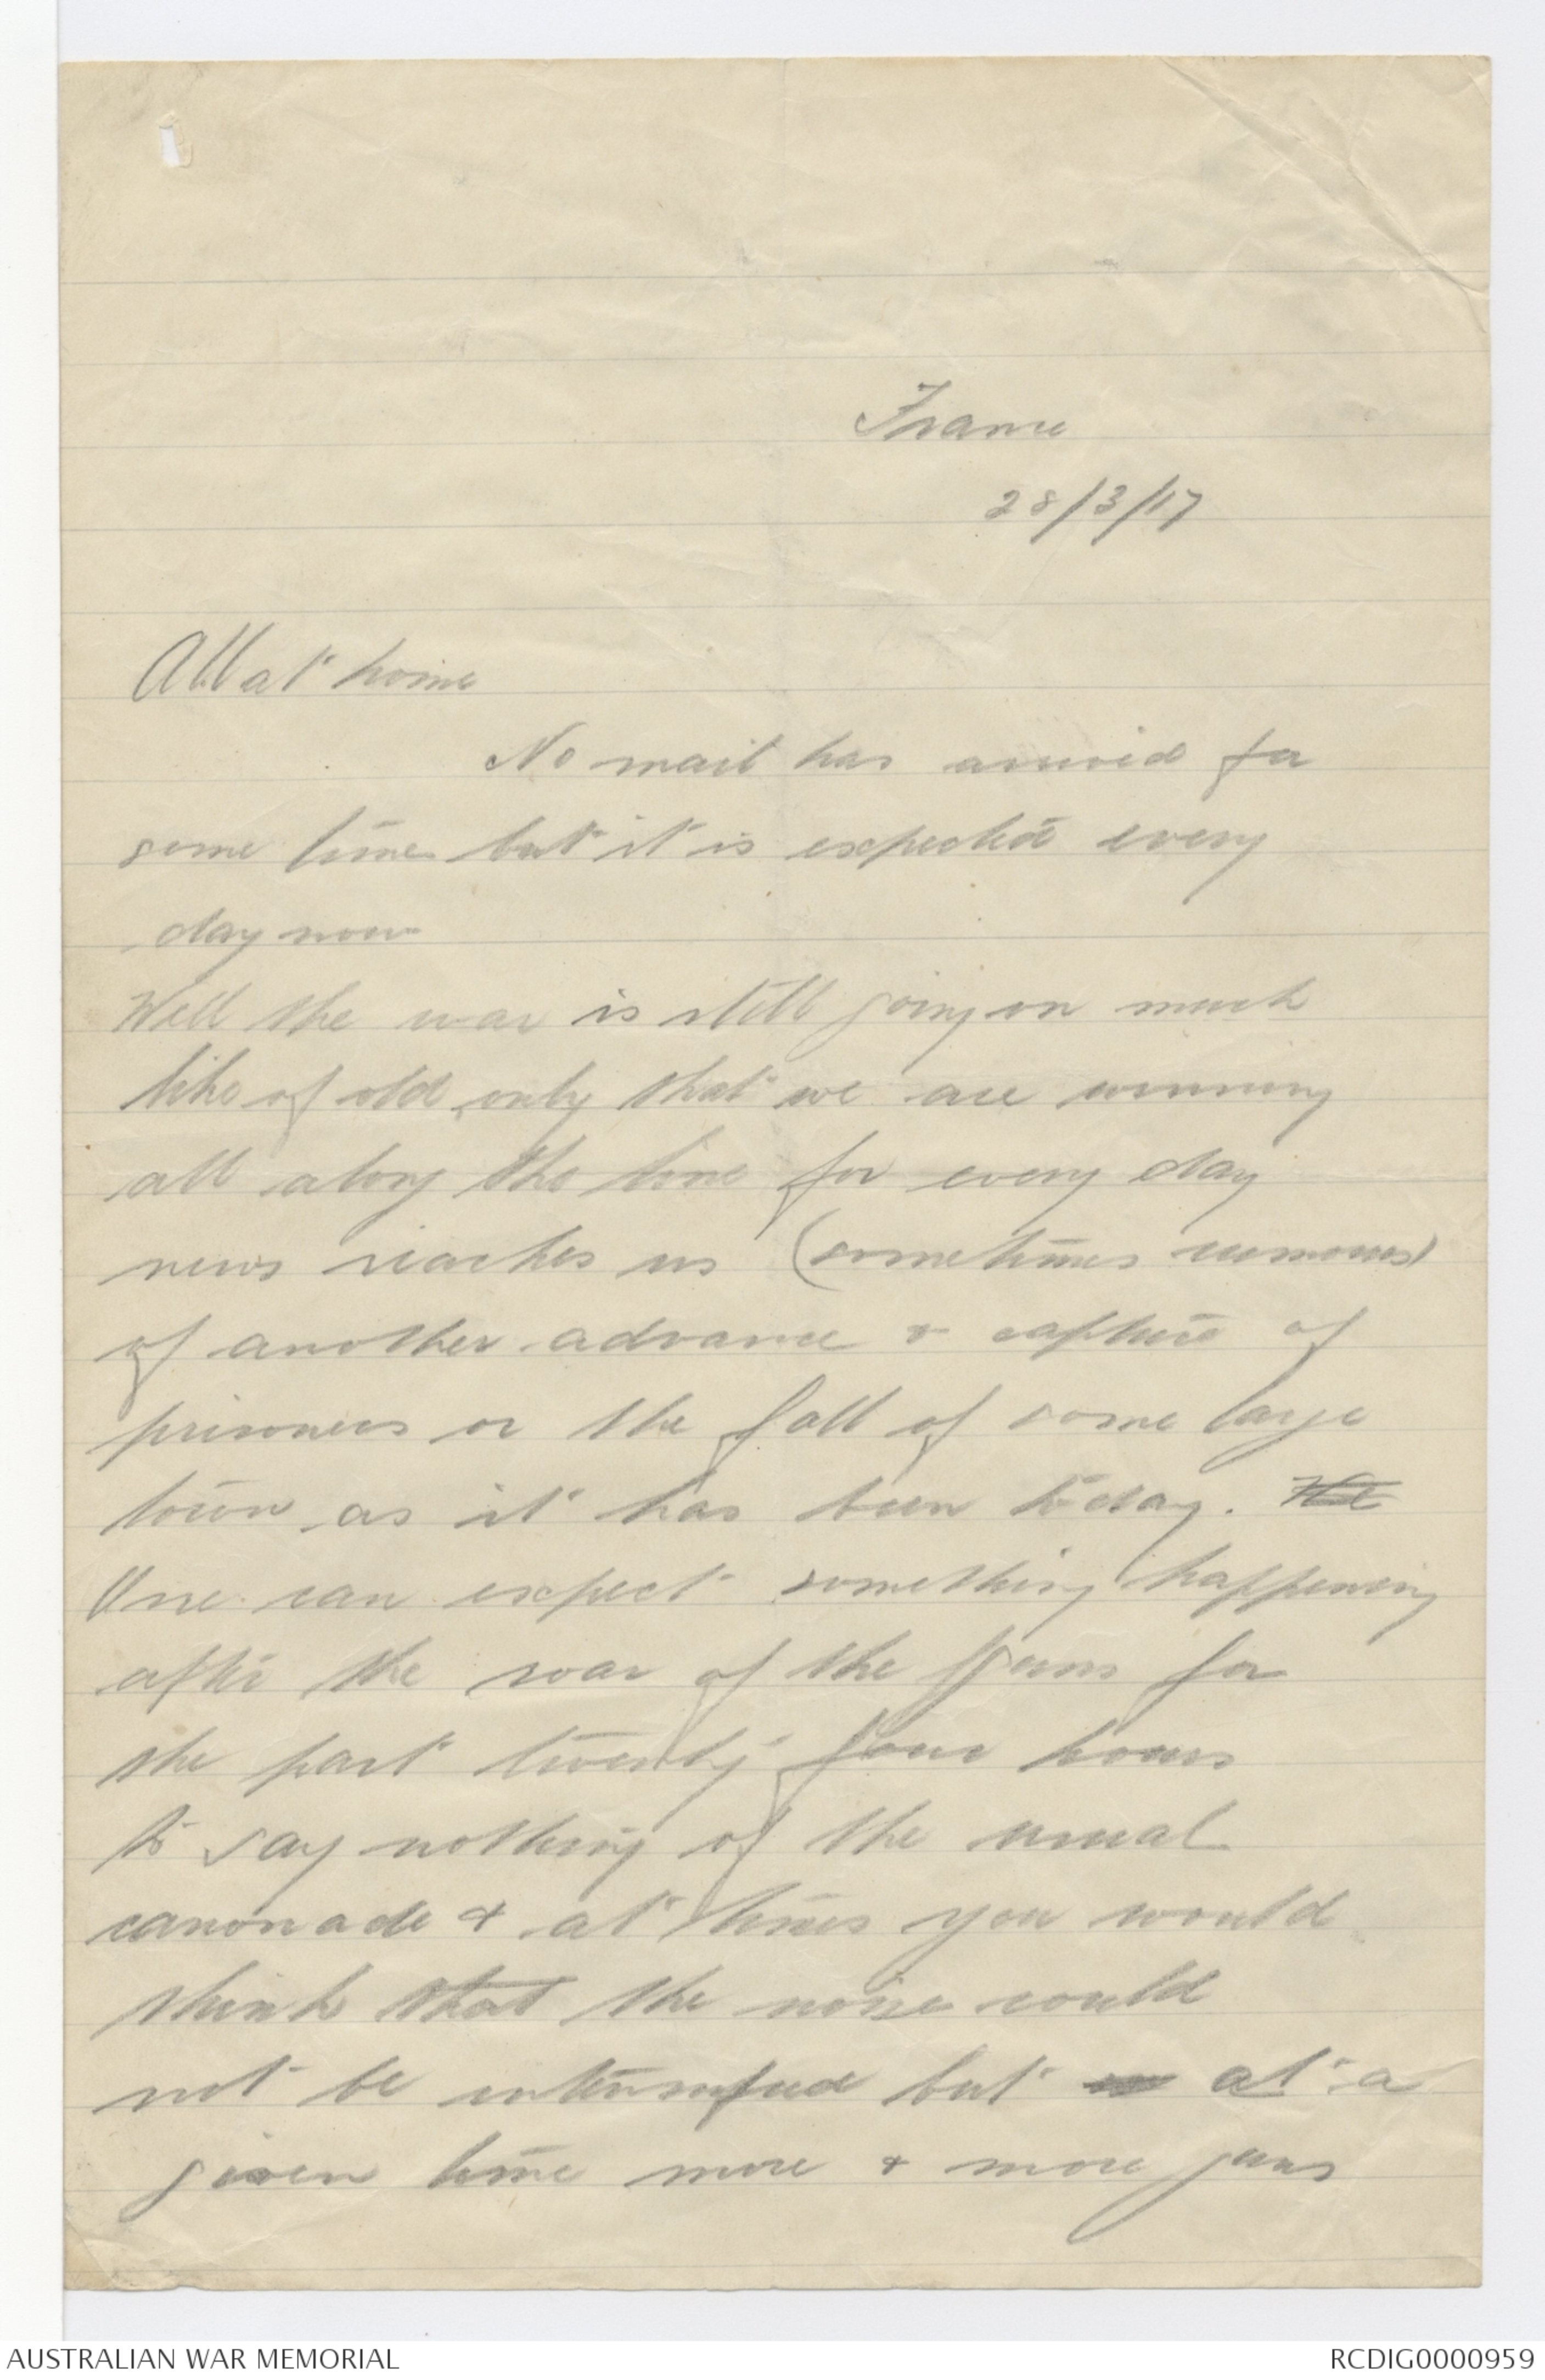 France
28/3/17
All at home
No mail has arrived for
some time but it is expected every
day now
Well the war is still going on much
like of old only that we are winning
all along the line for every day
news reaches us (sometimes rumours)
of another advance & capture of
prisoners or the fall of some large
town as it has been today.
One can expect something happening
after the roar of the guns for
the past twenty four hours
to say nothing of the usual
canonade & at times you would
think that the noise could
not be but at a
given time more & more guns
AUSTRALIAN WAR MEMORIAL
RCDIG0000959